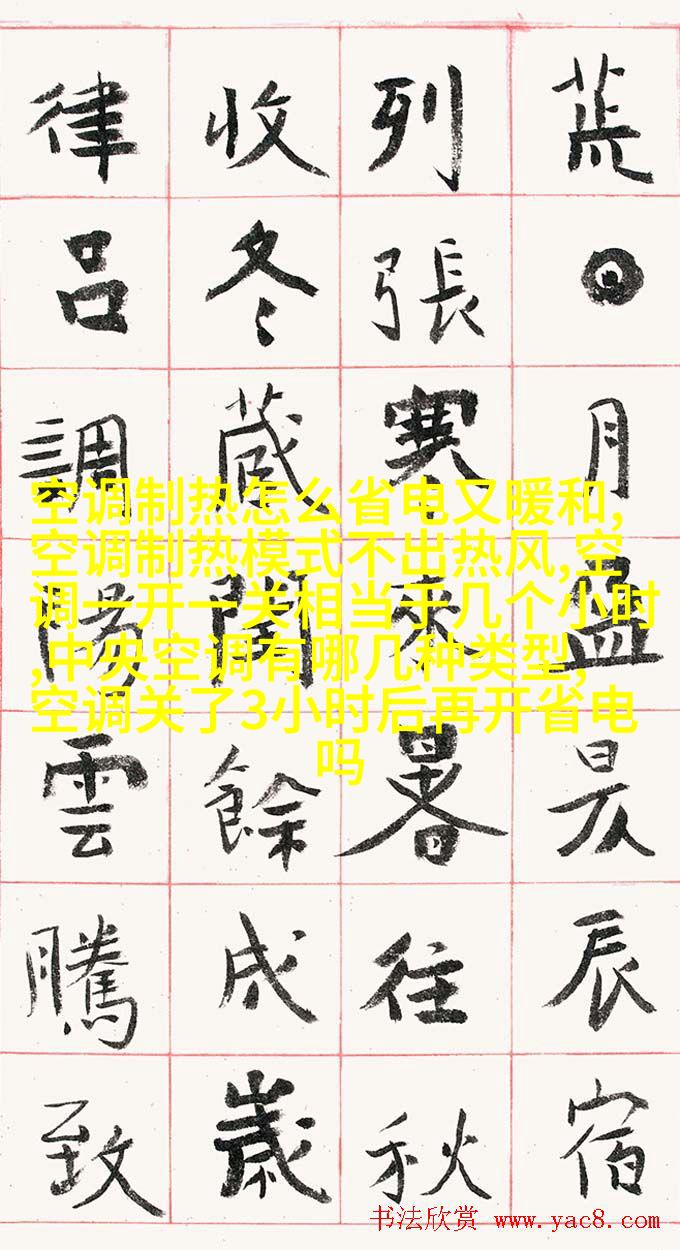 荒日月盈昃辰宿
列張寒來暑往秋
收冬藏閏餘成歲
律呂調陽雲騰致
空调制热怎么省电又暖和,
空调制热模式不出热风,空
调一开一关相当于几个小时
,中央空调有哪几种类型,
空调关了3小时后再开省电
吗
书法欣赏 www.yac8.com